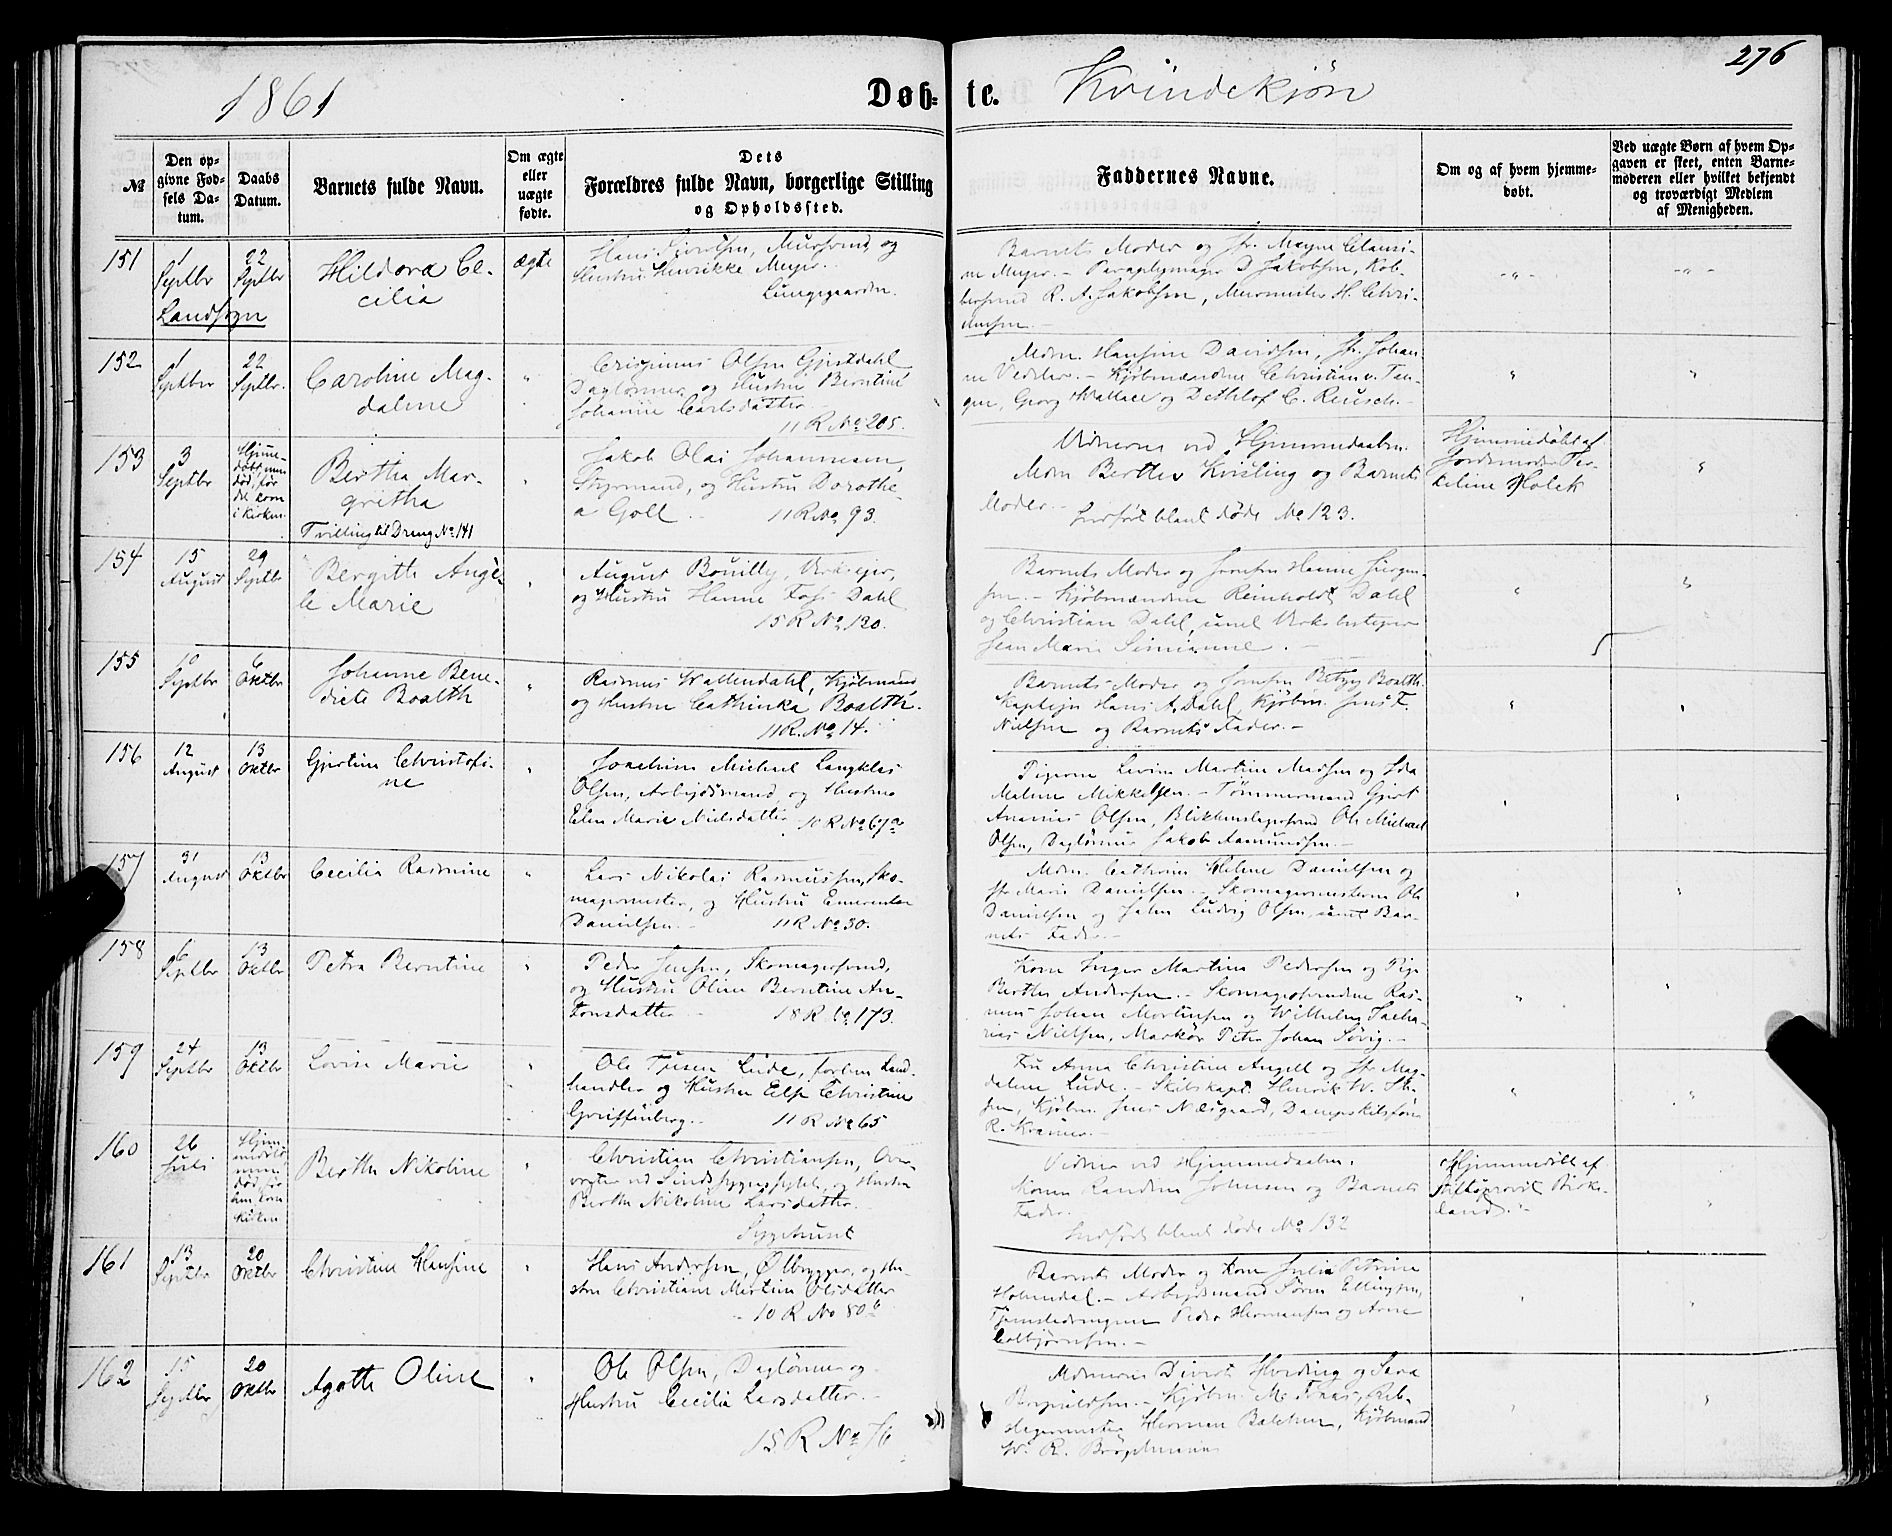 276
1861
Døb-
te. Kvindekjøn
№
Den op-
givne Fød-
sels Da-
tum.
Daabs
Datum.
Barnets fulde Navn.
Om ægte
eller
uægte
fødte.
Dets
Forældres fulde Navn, borgerlige Stilling
og Opholdssted.
Faddernes Navne.
Om og af hvem hjemme-
døbt.
Ved uægte Børn af hvem Op-
gaven er skeet, enten Barne-
moderen eller hvilket bekjendt
og troværdigt Medlem
af Menigheden.
151
1
Septbr
Landsogn
22
Septbr
Hildora Ce-
cilia
ægte
Hans Murvend og
Hustru Henrikke Meyer.
Lungegaarden.
Barnets Moder og Jfr. Clausi-
ne Meyer. - Paraplymager D. Jakobsen, Kob-
bersvend R. A. Jakobsen, Murmester H. Chri-
152
1
Septbr
22
Septbr.
Caroline Mag-
dalene
Crispinus Olsen Gjestdahl
Daglønner, og Hustru Berntine
Johanne Carlsdatter.
11 R No 205.
Mdm. Hansine Davidsen, Jfr. Johan-
ne Vedeler. - Kjøbmændene Christian v. Tan-
gen, Georg Wallace og Dethlof C. Reusch. -
153
3
Septbr
Hjemme-
døbt, men
død, før
det kom
i Kirken.
Bertha Mar-
gretha
Tvilling til Dreng No 141
Jakob Olai Johannesen,
Styrmand, og Hustru Dorothe-
a Goll. 11 R No 93.
Vidnerne ved Hjemmedaaben.
Mdm Berthe Kvisling og Barnets
Moder. -
Indført blant døde No 123.
Hjemmedøbt af
Jordemoder Pe-
Holck
154
15
August
29
Septbr
Bergitte Angè-
le Marie
August Bouilly,
og Hustru Hanne Dahl
15 R No 120.
Barnets Moder og Hanne Jürgen-
sen. - Kjøbmændene Reinholdt Dahl
og Christian Dahl, samt
Jean Marie
155
10
Septbr
6
Oktbr
Johanne Bene-
dicte Boalth
Rasmus Wallendahl, Kjøbmand
og Hustru Cathinka Boalth.
11 R. No 14.
Barnets Moder og Betzy Boalth.
Kaptejn Hans A. Dahl, Kjøbm. Jens F.
Nielsen og Barnets Fader. -
156
12
August
13
Oktbr
Gjertine Christofi-
ne
Joachim Michael Langklas
Olsen, Arbejdsmand og Hustru
Elen Marie Nielsdatter. 10 R No 67a
Pigerne Levine Martine Madsen og Ida
Maline Mikkelsen. - Tømmermand Gjert
Ananias Olsen, Blikkenslagersvend Ole Michael
Olsen, Daglønner Jakob Aamundsen. -
157
31
August
13
Oktbr
Cecilia Rasmine
Lars Nikolai Rasmussen, Sko-
magermester, og Hustru Emerentse
Danielsen. - 11 R No 30.
Mdm. Cathrine Helene Danielsen og
Jfr Marie Danielsen. - Skomagermesterne Ole
Danielsen og John Ludvig Olsen, samt Bar-
nets Fader. -
158
6
Septbr
13
Oktbr
Petra Berntine
Peder Jensen, Skomagersvend,
og Hustru Oline Berntine An-
tonsdatter. - 18 R No 173.
Kone Inger Martine Pedersen og Pige
Berthe Andersen. - Skomagersvendene Ras-
mus Johan Mortensen og Wilhelm Zacha-
rias Nielsen, Markør Peter Johan Søvig. -
159
24
Septbr
13
Oktbr
Lovise Marie
Ole Lude, forhen Land-
handler og Hustru Else Christine
Greiffenberg. - 11 R No 65
Fru Anna Christine Angell og Jfr Mag-
dalene Lude. - Skibskapt. Henrik W.
sen, Kjøbm. Jens Næsgaard, Dampskibsfører
R. Kramer. -
160
26
Juli
Hjem-
medøbt,
men
død, før
den kom
Kirken
Berthe Nikoline
Christian Christiansen, Over-
vogter ved Sindssygeasylet, og Hustru
Berthe Nikoline Larsdatter.
Sygehuset
Vidner ved Hjemmedaaben.
Konen Randine Johnsen og Barnets
Fader.
Indført blant døde No 132
Hjemmedøbt af
Stiftsprovst Birke-
land. -
161
13
Septbr
20
Oktbr
Christine Hansine
Hans Andersen, Ølbrygger, og Hu-
stru Christiane Martine Olsdatter
10 R No 80b
Barnets Moder og Kone Julia Petrine
Holmedal. - Arbejdsmand Søren Ellingsen,
Tjenestedrengene Peder Hermansen og Arne
Colbjørnsen. -
162
15
Septbr
20
Oktbr
Agathe Oline
Ole Olsen, Daglønner og
Hustru Cecilia Larsdatter. -
15 R No 76
Hverding og Sara
Kjøbm. M. Reb-
slagermester Herman Kjøbmand
W. R.